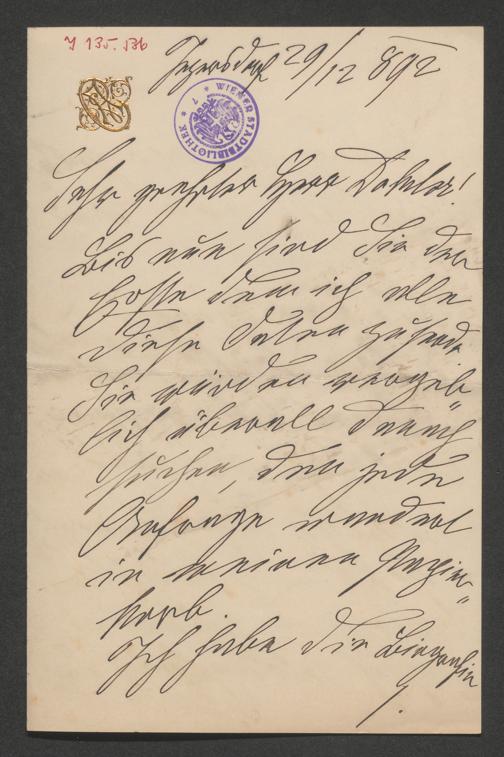 J 135.536
29/12 892
* WIENER STADTBIBLIOTHEK * 7
Sehr geehrter Herr Doktor!
Bis nun sind Sie der
Erste dem ich alle
diese Daten zusende
Sie würden vergeb„
lich überall danach
suchen, denn jede
Anfrage wandert
in meinen Papier„
korb.
Ich habe die Biografie